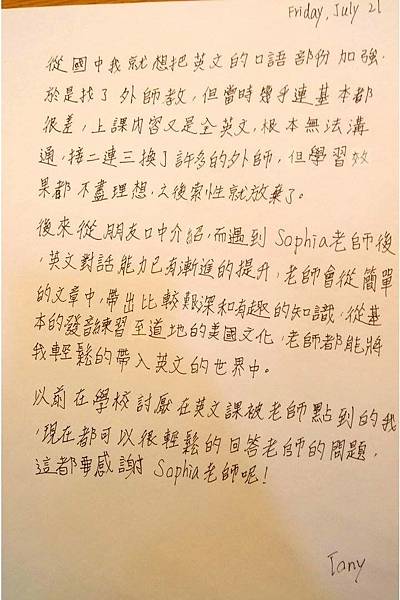 Friday, July 21
從國中我就想把英文的口語部份加強.
於是找了外師教，但當時幾乎連基本都
很差，上課內容又是全英文，根本無法溝
通，接二連三換了許多的外師，但學習效
果都不盡理想，之後索性就放棄了。
後來從朋友口中介紹，而遇到 Sophia老師後
，英文對話能力已有漸進的提升，老師會從簡單
的文章中，帶出比較艱深和有趣的知識，從基
本的發音練習至道地的美國文化，老師都能將
我輕鬆的帶入英文的世界中。
以前在學校討厭在英文課被老師點到的我
，現在都可以很輕鬆的回答老師的問題，
這都要感謝 Sophia老師呢！
Tony